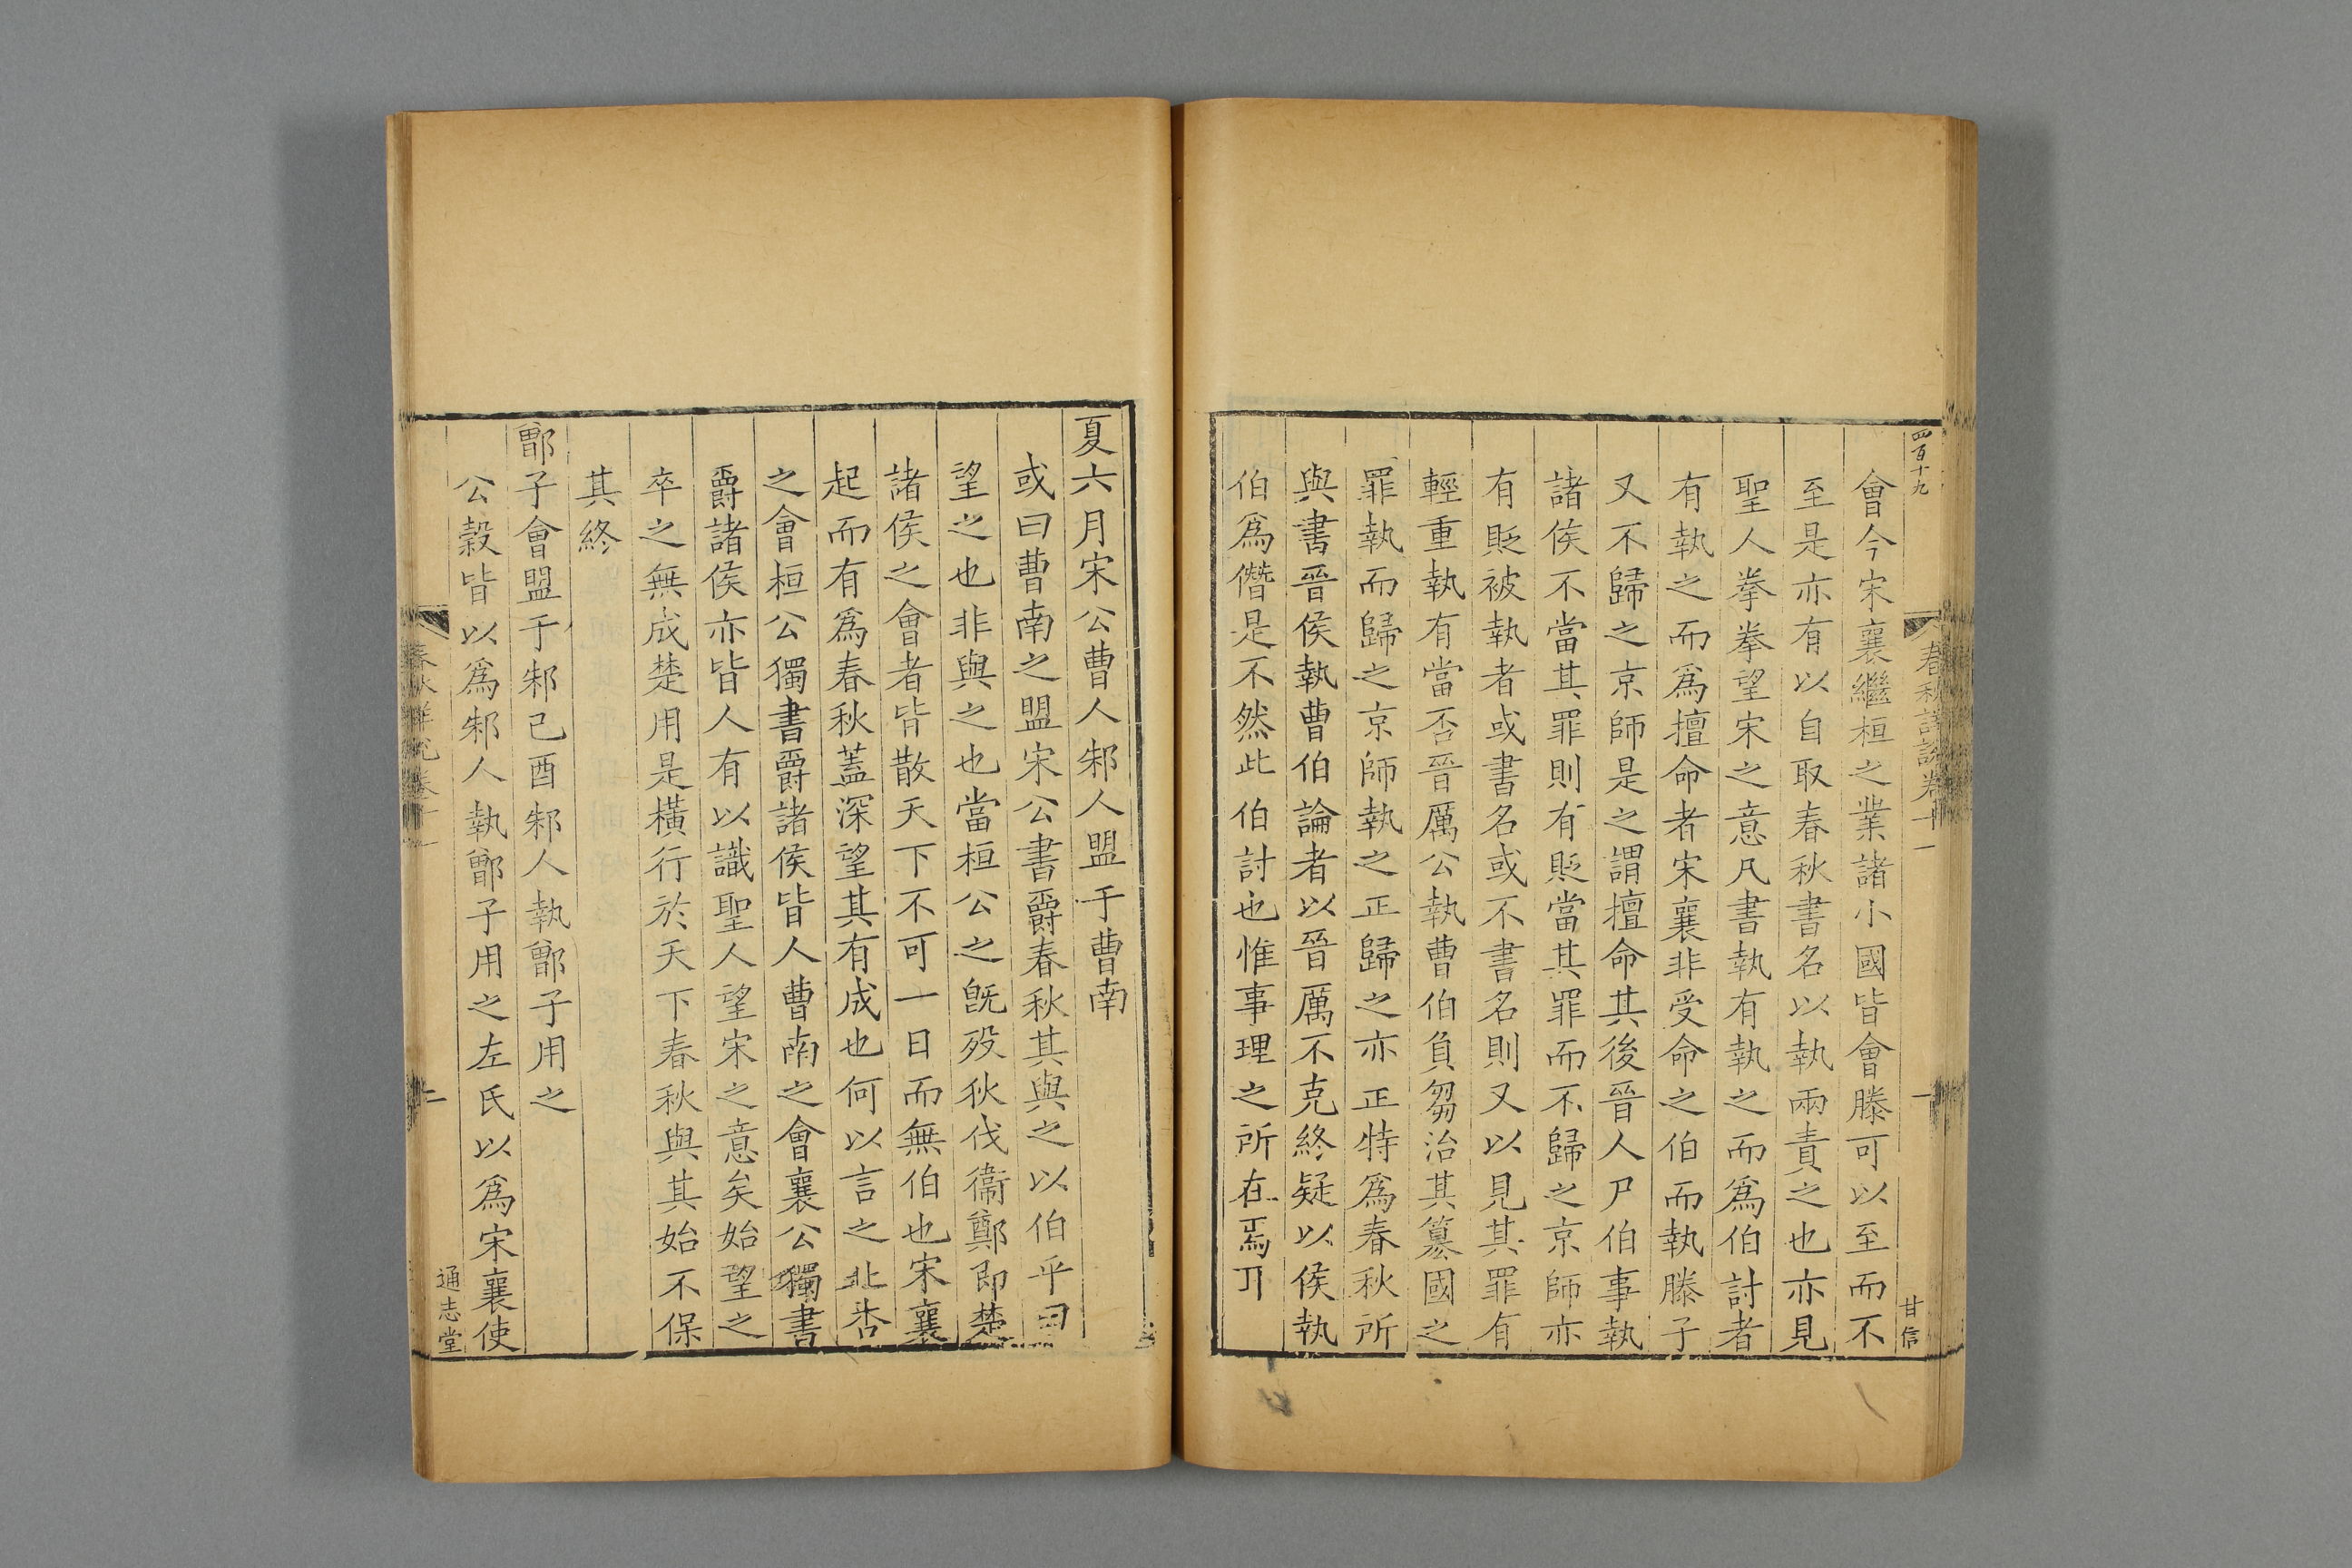 四百十九
春秋詳說卷十一
甘信
會今宋襄繼桓之業諸小國皆會滕可以至而不
至是亦有以自取春秋書名以執兩責之也亦見
聖人拳拳望宋之意凡書執有執之而爲伯討者
有執之而爲擅命者宋襄非受命之伯而執滕子
又不歸之京師是之謂擅命其後晉人尸伯事執
諸侯不當其罪則有貶當其罪而不歸之京師亦
有貶被執者或書名或不書名則又以見其罪有
輕重執有當否晉厲公執曹伯負芻治其簒國之
罪執而歸之京師執之正歸之亦正特爲春秋所
與書晉侯執曹伯論者以晉厲不克終疑以侯執
伯爲僭是不然此伯討也惟事理之所在焉丌
夏六月宋公曹人邾人盟于曹南
或曰曹南之盟宋公書爵春秋其與之以伯乎曰
望之也非與之也當桓公之旣歿狄伐衞鄭卽楚
諸侯之會者皆散天下不可一日而無伯也宋襄
起而有爲春秋葢深望其有成也何以言之北杏
之會桓公獨書爵諸侯皆人曹南之會襄公獨書
爵諸侯亦皆人有以識聖人望宋之意矣始望之
卒之無成楚用是橫行於天下春秋與其始不保
其終
鄫子會盟于邾己酉邾人執鄫子用之
公穀皆以爲邾人執鄫子用之左氏以爲宋襄使
春秋詳說卷十一
二
通志堂